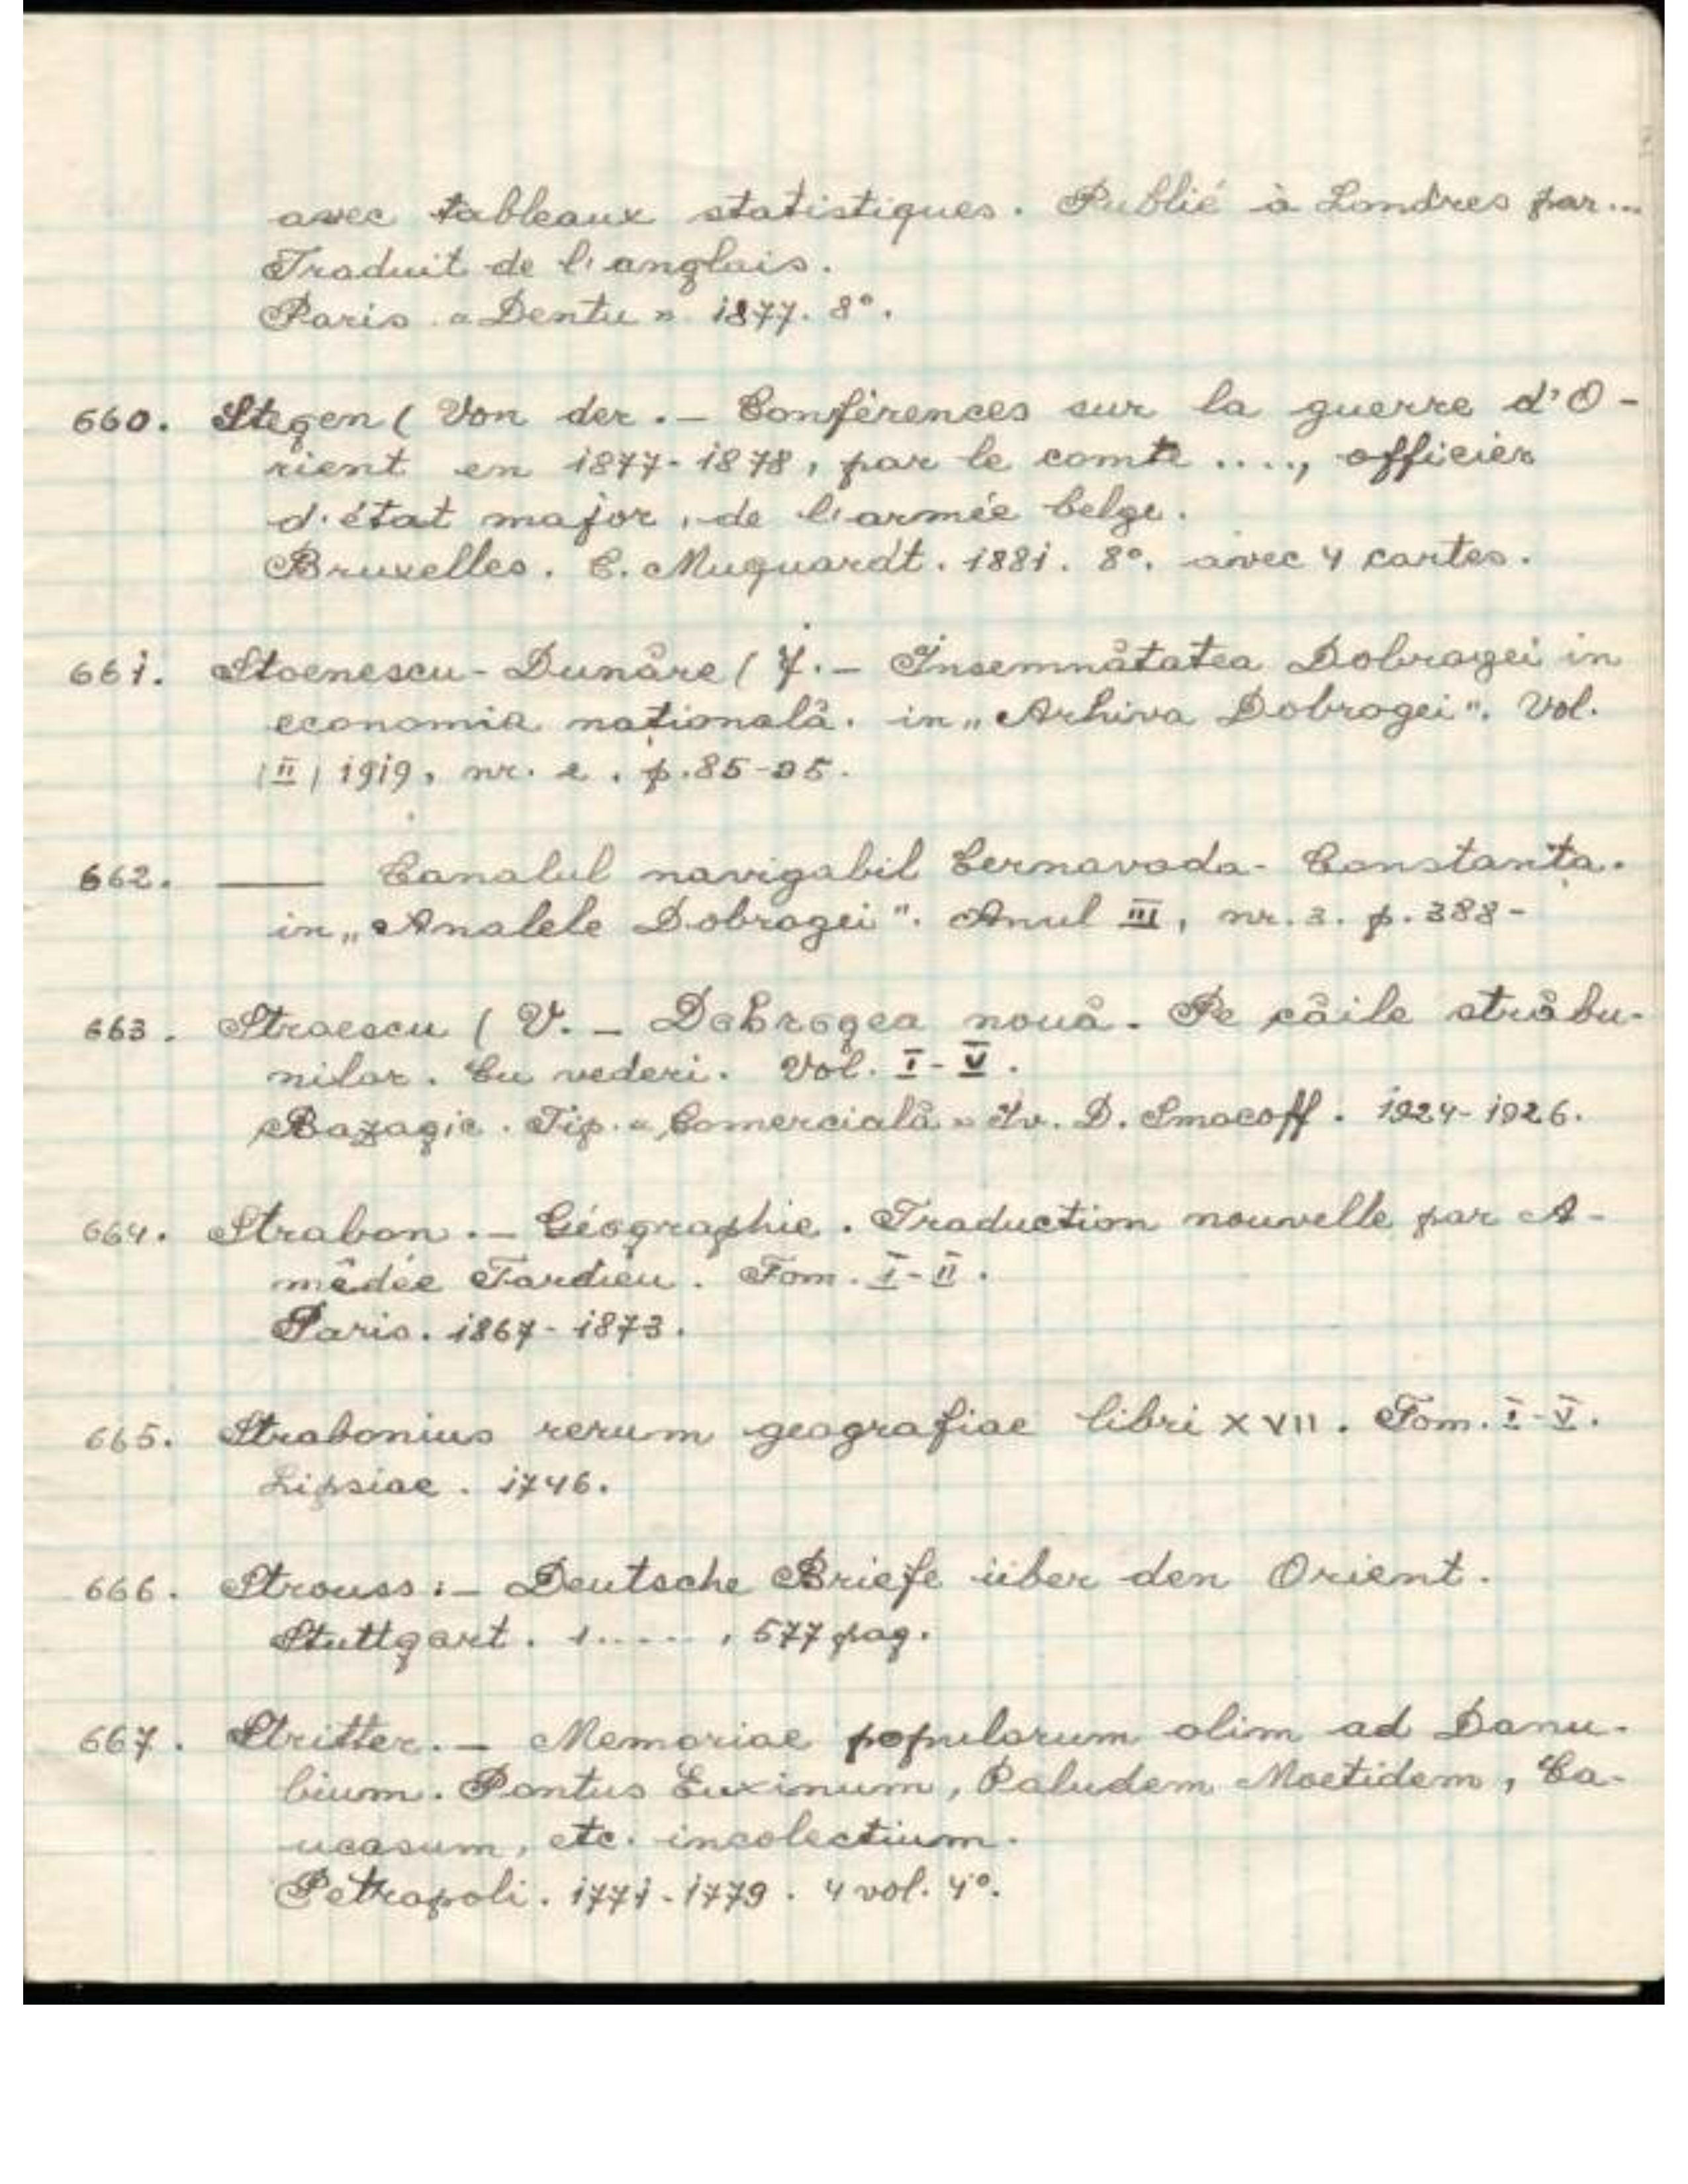 avec tableaux statistiques. Publié à Londres par...
Traduit de l'anglais.
Paris «Dentu» 1877. 8°.
660. Stegen ( Von der. - Conférences sur la guerre d'O-
rient en 1877-1878, par le comte ...., officier
d'état major, de l'armée belge.
Bruxelles. C. Muquardt. 1881. 8°. avec 4 cartes.
661. Stoenescu-Dunăre ( J. - Insemnătatea Dobrogei in
economia naţională. in „Arhiva Dobrogei". Vol.
(II) 1919, nr. 2. p. 85-95.
662. ___ Canalul navigabil Cernavoda-Constanţa.
in „Analele Dobrogei". Anul III, nr. 3. p. 388-
663. Straescu ( V. - Dobrogea nouă. Pe căile străbu-
nilor. Cu vederi. Vol. I-V.
Bazagic. Tip. «Comercială» Iv. D. Smocoff. 1924-1926.
664. Strabon. - Géographie. Traduction nouvelle par A-
médée Tardieu. Tom. I-II.
Paris. 1867-1873.
665. Strabonius rerum geografiae libri XVII. Tom. I-V.
Lipsiae. 1746.
666. Strouss: - Deutsche Briefe über den Orient.
Stuttgart. 1....., 577 pag.
667. Stritter. - Memoriae popularum olim ad Danu-
bium. Pontus Euxinum, Paludem Moetidem, Ca-
ucasum, etc. incolectium.
Petropoli. 1771-1779. 4 vol. 4°.